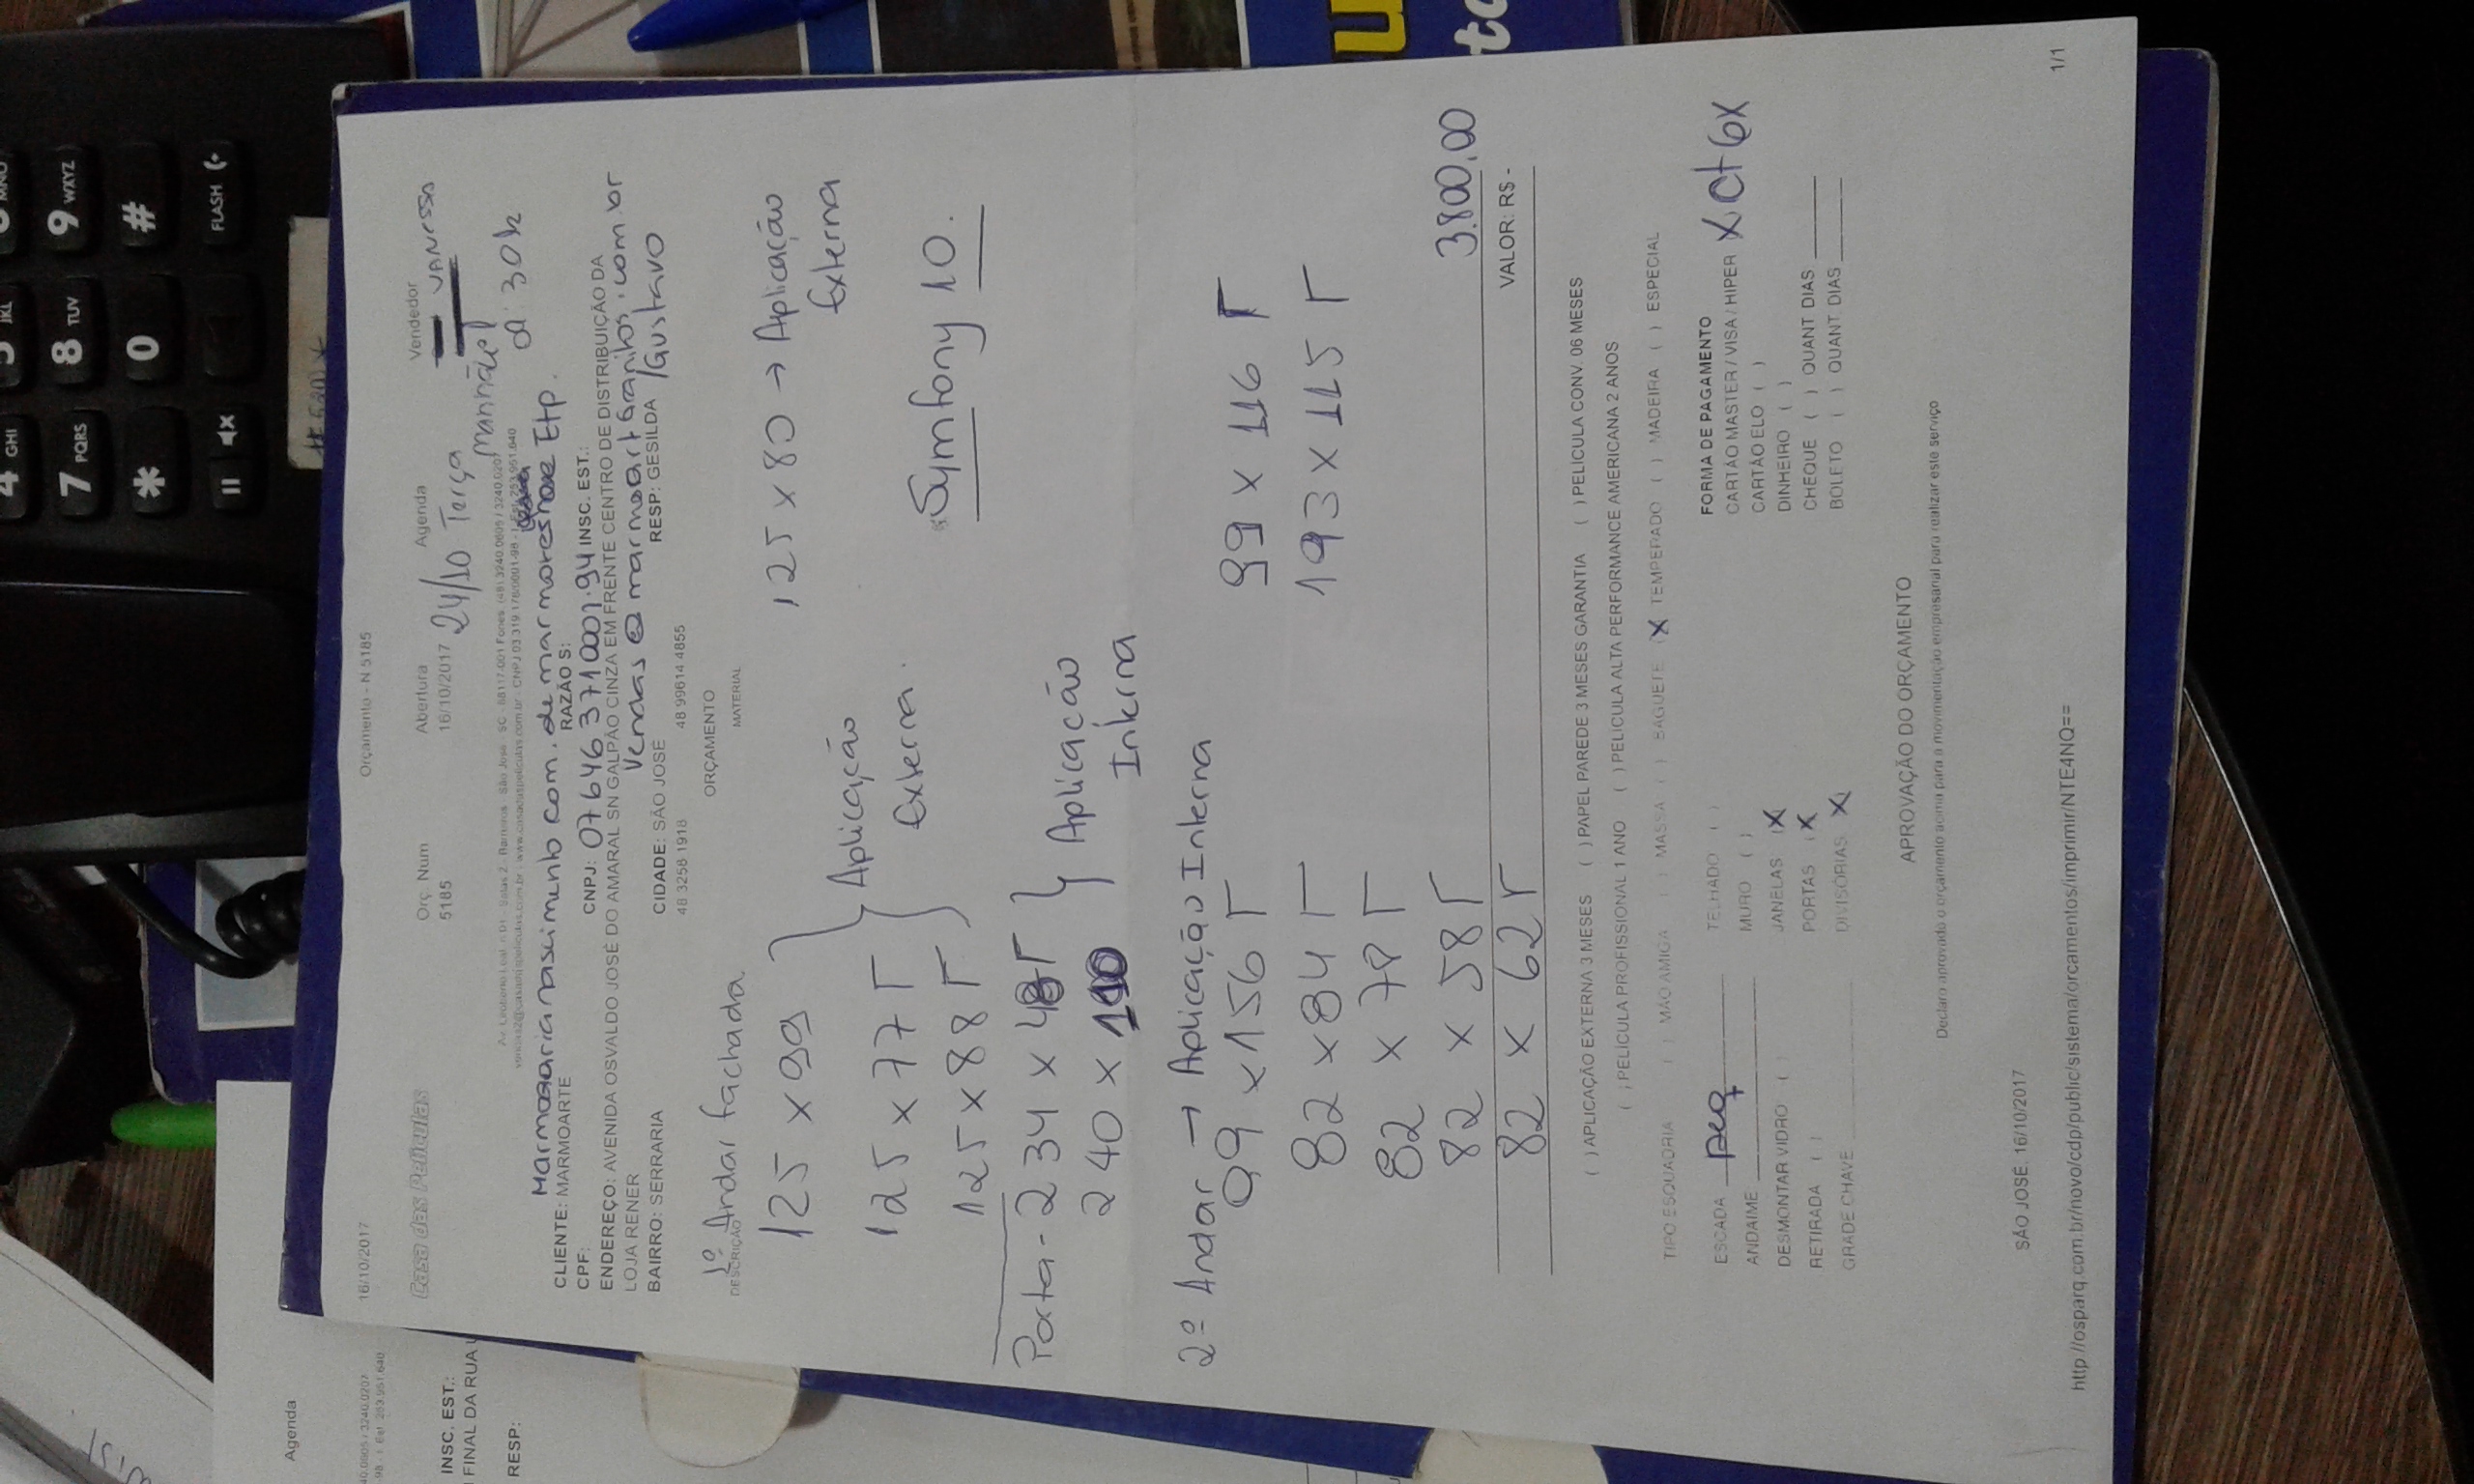 16/10/2017 Orçamento - N 5185
Casa das Películas
Orç. Num Abertura Agenda Vendedor
5185 16/10/2017 24/10 Terça VANESSA
manhãe
01:30h
São José SC 88117-001 Fones (48) 3240.0605 / 3240.0207
Marmoaria nascimento com. de marmores Etp.
CLIENTE: MARMOARTE RAZÃO S:
CPF: CNPJ: 07646371 0001.94 INSC. EST.:
ENDEREÇO: AVENIDA OSVALDO JOSÉ DO AMARAL SN GALPÃO CINZA EM FRENTE CENTRO DE DISTRIBUIÇÃO DA
LOJA RENER vendas@marmoartgranitos.com.br
BAIRRO: SERRARIA CIDADE: SÃO JOSÉ RESP: GESILDA /Gustavo
48 3258 1918 48 99614 4855
ORÇAMENTO
DESCRIÇÃO MATERIAL
1º Andar fachada
125 x 99 125 x 80 → Aplicação
Externa
125 x 77 Γ } Aplicação
Externa.
125 x 88 Γ Symfony 10.
Porta - 234 x 48 Γ } Aplicação
Interna
240 x 110
2º Andar → Aplicação Interna
99 x 156 Γ 99 x 116 Γ
82 x 84 Γ 193 x 115 Γ
82 x 78 Γ
82 x 58 Γ 3.800,00
82 x 62 Γ VALOR: R$ -
( ) APLICAÇÃO EXTERNA 3 MESES ( ) PAPEL PAREDE 3 MESES GARANTIA ( ) PELICULA CONV. 06 MESES
( ) PELÍCULA PROFISSIONAL 1 ANO ( ) PELICULA ALTA PERFORMANCE AMERICANA 2 ANOS
TIPO ESQUADRIA ( ) MÃO AMIGA ( ) MASSA ( ) BAGUETE (X TEMPERADO ( ) MADEIRA ( ) ESPECIAL
ESCADA peq TELHADO ( ) FORMA DE PAGAMENTO
ANDAIME MURO ( ) CARTÃO MASTER / VISA / HIPER X ct 6x
DESMONTAR VIDRO ( ) JANELAS (X CARTÃO ELO ( )
RETIRADA ( ) PORTAS (X DINHEIRO ( )
GRADE CHAVE DIVISÓRIAS X CHEQUE ( ) QUANT DIAS
BOLETO ( ) QUANT. DIAS
APROVAÇÃO DO ORÇAMENTO
Declaro aprovado o orçamento acima para a movimentação empresarial para realizar este serviço
SÃO JOSÉ 16/10/2017
http://osparq.com.br/novo/cdp/public/sistema/orcamentos/imprimir/NTE4NQ== 1/1
Agenda
INSC. EST.:
FINAL DA RUA
RESP:
4 GHI
7 PQRS
8 TUV
9 WXYZ
*
0
#
FLASH